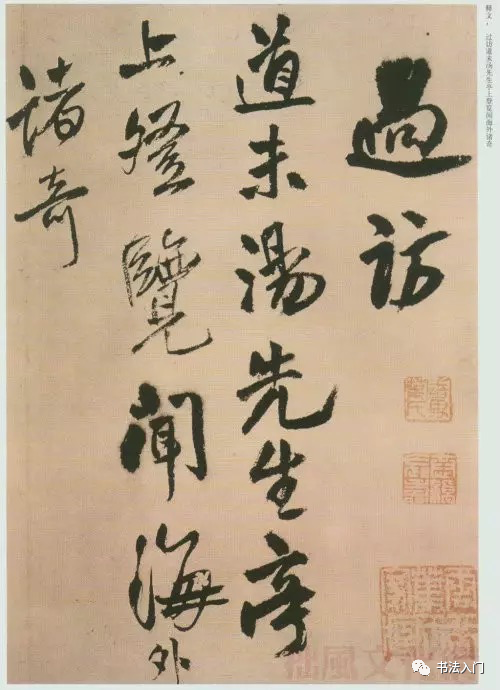 释文：过访道未汤先生亭上登览闻海外诸奇
過訪
道未湯先生亭
上登覽聞海外
諸奇
书法入门